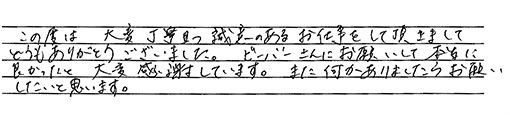 この度は 大変丁寧且つ誠意のあるお仕事をして頂きまして
どうもありがとうございました。 ビーバーさんにお願いして本当に
良かったと 大変感謝しています。 また何かありましたらお願い
したいと思います。